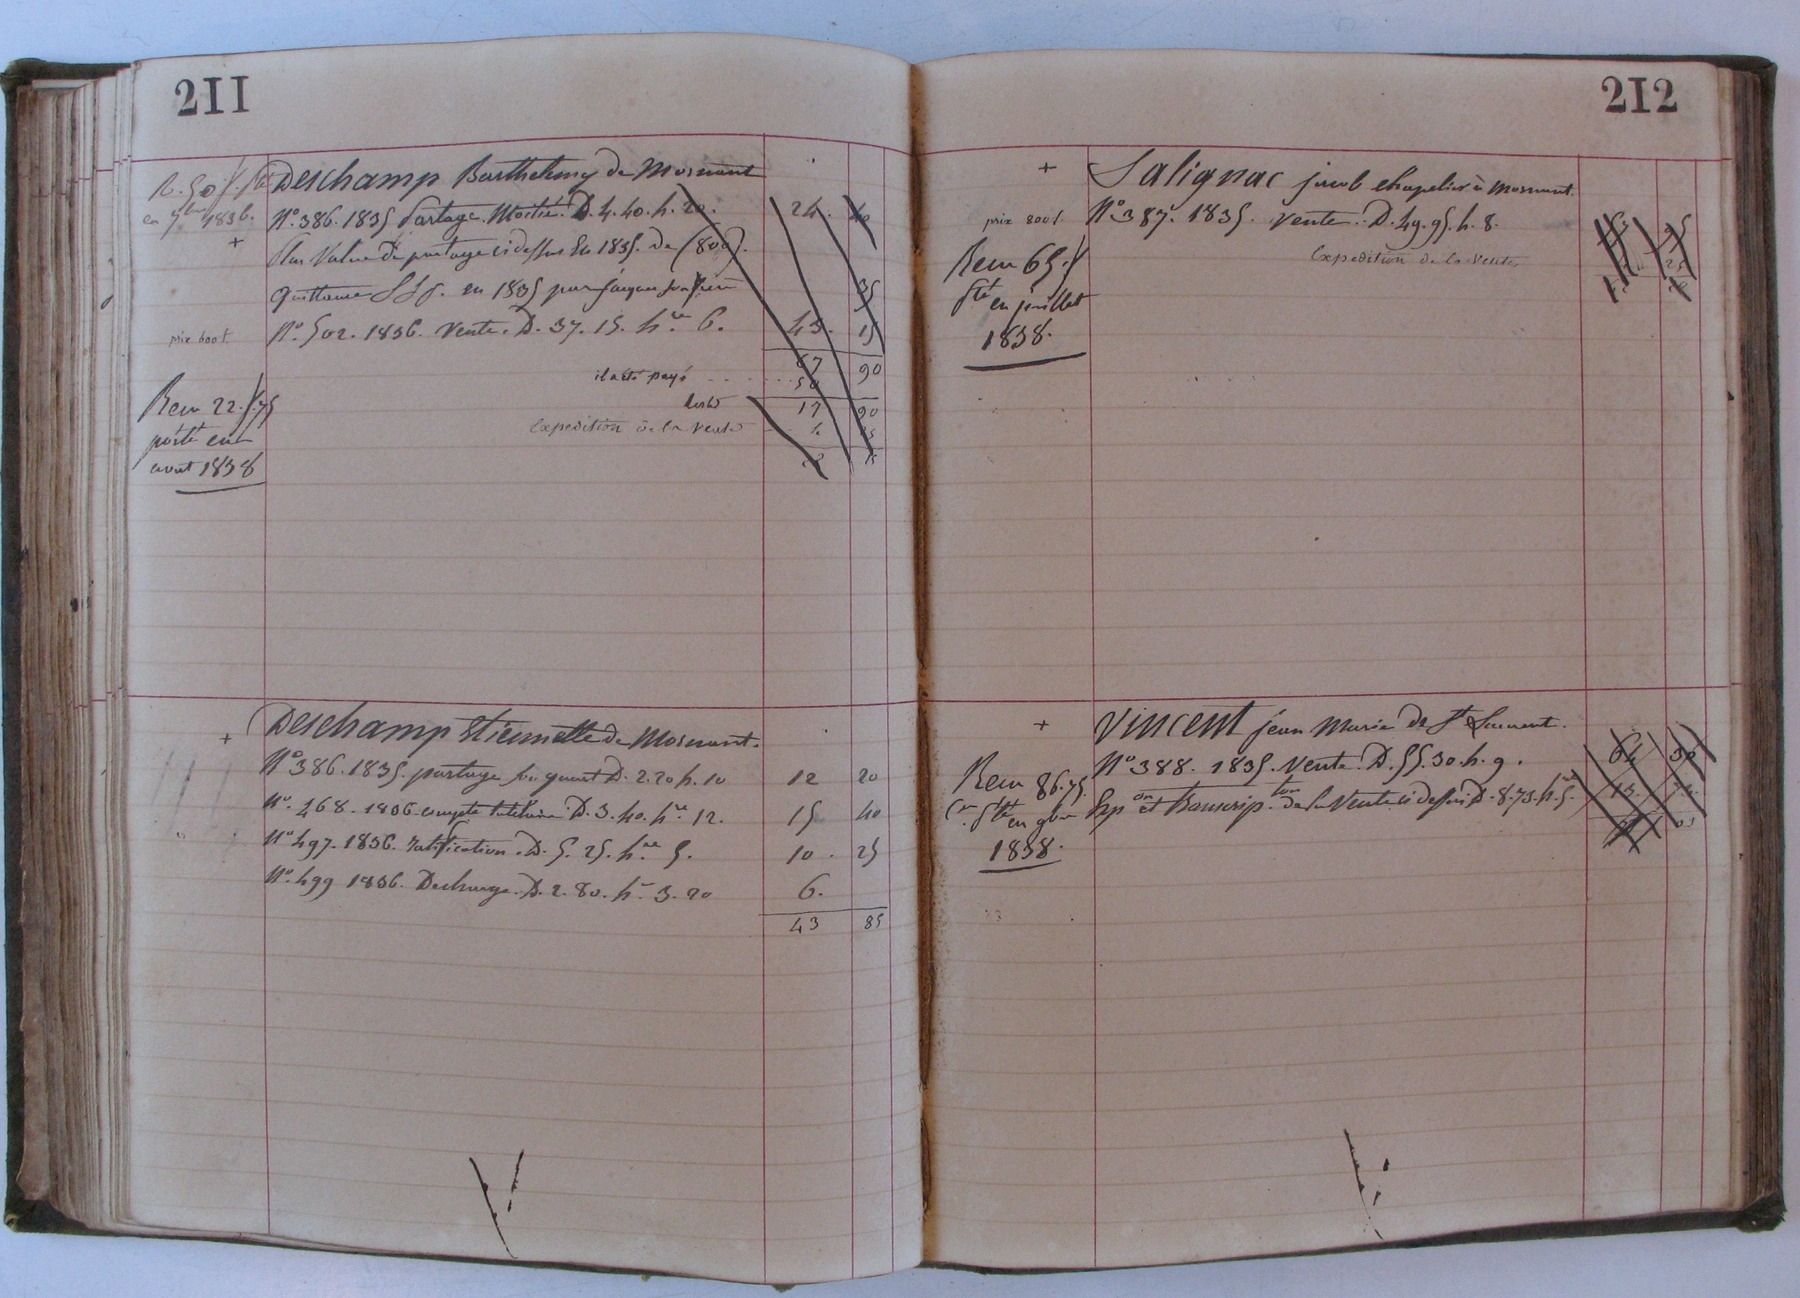 211
R. 50 f.
en 7bre 1836.
+
Deschamp Barthelemy de Mornant
N° 386. 1835 Partage. Moitié. D. 4. 40. h. 20. 24. 40
Plus Value du partage ci dessus En 1835. de (800).
quittance SSP. en 1835 par jacques son frère 35
prix 600 f.
N°. 502. 1836. Vente. D. 37. 15. hre 6. 43. 15
67 90
il a été payé 50
Reste 17 90
Expedition de la vente
Recu 22. f. 75
porté en
aout 1838
+
Deschamp Etiennette de Mornant.
N° 386. 1835. partage un quart D. 2. 20 h. 10 12 20
N°. 268. 1836 compte tutelaire D. 3. 40. hre 12. 15 40
N° 497. 1836. ratification. D. 5. 25. hre 5. 10. 25
N°. 499 1836. Decharge. D. 2. 80. hre 3. 20 6.
43 85
212
+
Salignac jacob chapelier à Mornant.
prix 800 f.
N° 387. 1835. Vente. D. 49. 95. h. 8.
Expedition de la vente
Recu 65. f
en juillet
1838.
+
Vincent jean Marie de St Laurent.
N° 388. 1835. Vente. D. 55. 30. h. 9. 64 30
Exp on et transcrip ton de la Vente ci dessus D. 8. 73. hre 5.
Recu 86. 75
en 9bre
1838.